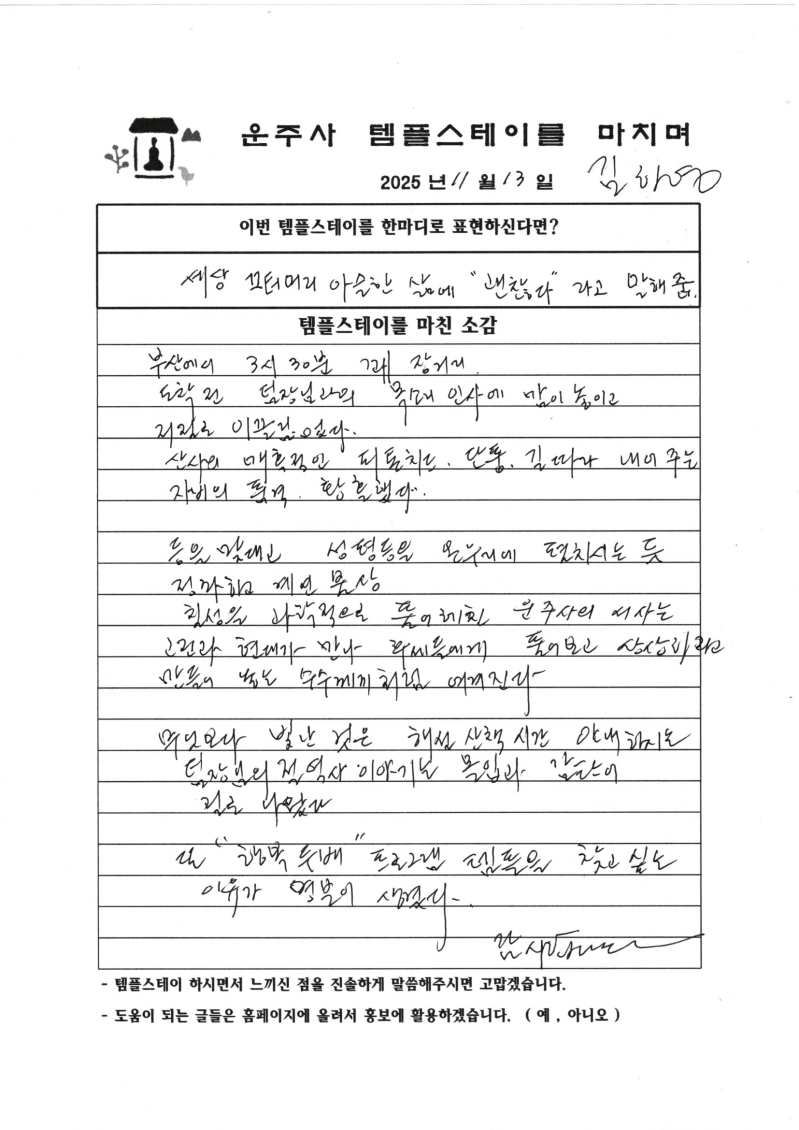 운주사 템플스테이를 마치며
2025 년 11 월 13 일 김하영
이번 템플스테이를 한마디로 표현하신다면?
세상 모터머리 아슬한 삶에 "괜찮다" 라고 말해 줌.
템플스테이를 마친 소감
부산에서 3시 30분 꽤 장거리.
도착 전 팀장님과의 인사에 맘이 놓이고
저절로 이끌림 었다.
산사의 매혹적인 피톤치드. 단풍. 길따라 내어 주는
자비의 품격. 황홀했다.
등을 맞대고 성평등을 온누리에 펼치시는 듯
정좌하고 계신 불상
칠성을 과학적으로 풀어헤친 운주사의 역사는
고전과 현대가 만나 후세들에게 풀어보고 상상하라고
만들어 놓은 수수께끼처럼 여겨진다
무엇보다 별난 것은 해설 산책 시간 안내하시는
팀장님의 절 역사 이야기는 몰입과 감탄이
절로 나왔다
또 "행복 두배" 프로그램 템플을 찾고 싶은
이유가 명분이 생겼다.
감사합니다
- 템플스테이 하시면서 느끼신 점을 진솔하게 말씀해주시면 고맙겠습니다.
- 도움이 되는 글들은 홈페이지에 올려서 홍보에 활용하겠습니다. ( 예 , 아니오 )